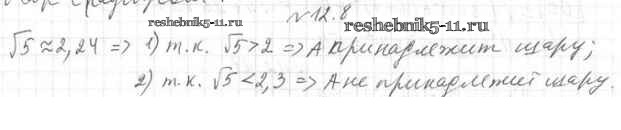 №12.8
reshebnik5-11.ru
reshebnik5-11.ru
√5≈2,24 => 1) т.к. √5>2 => А принадлежит шару;
2) т.к. √5<2,3 => А не принадлежит шару.